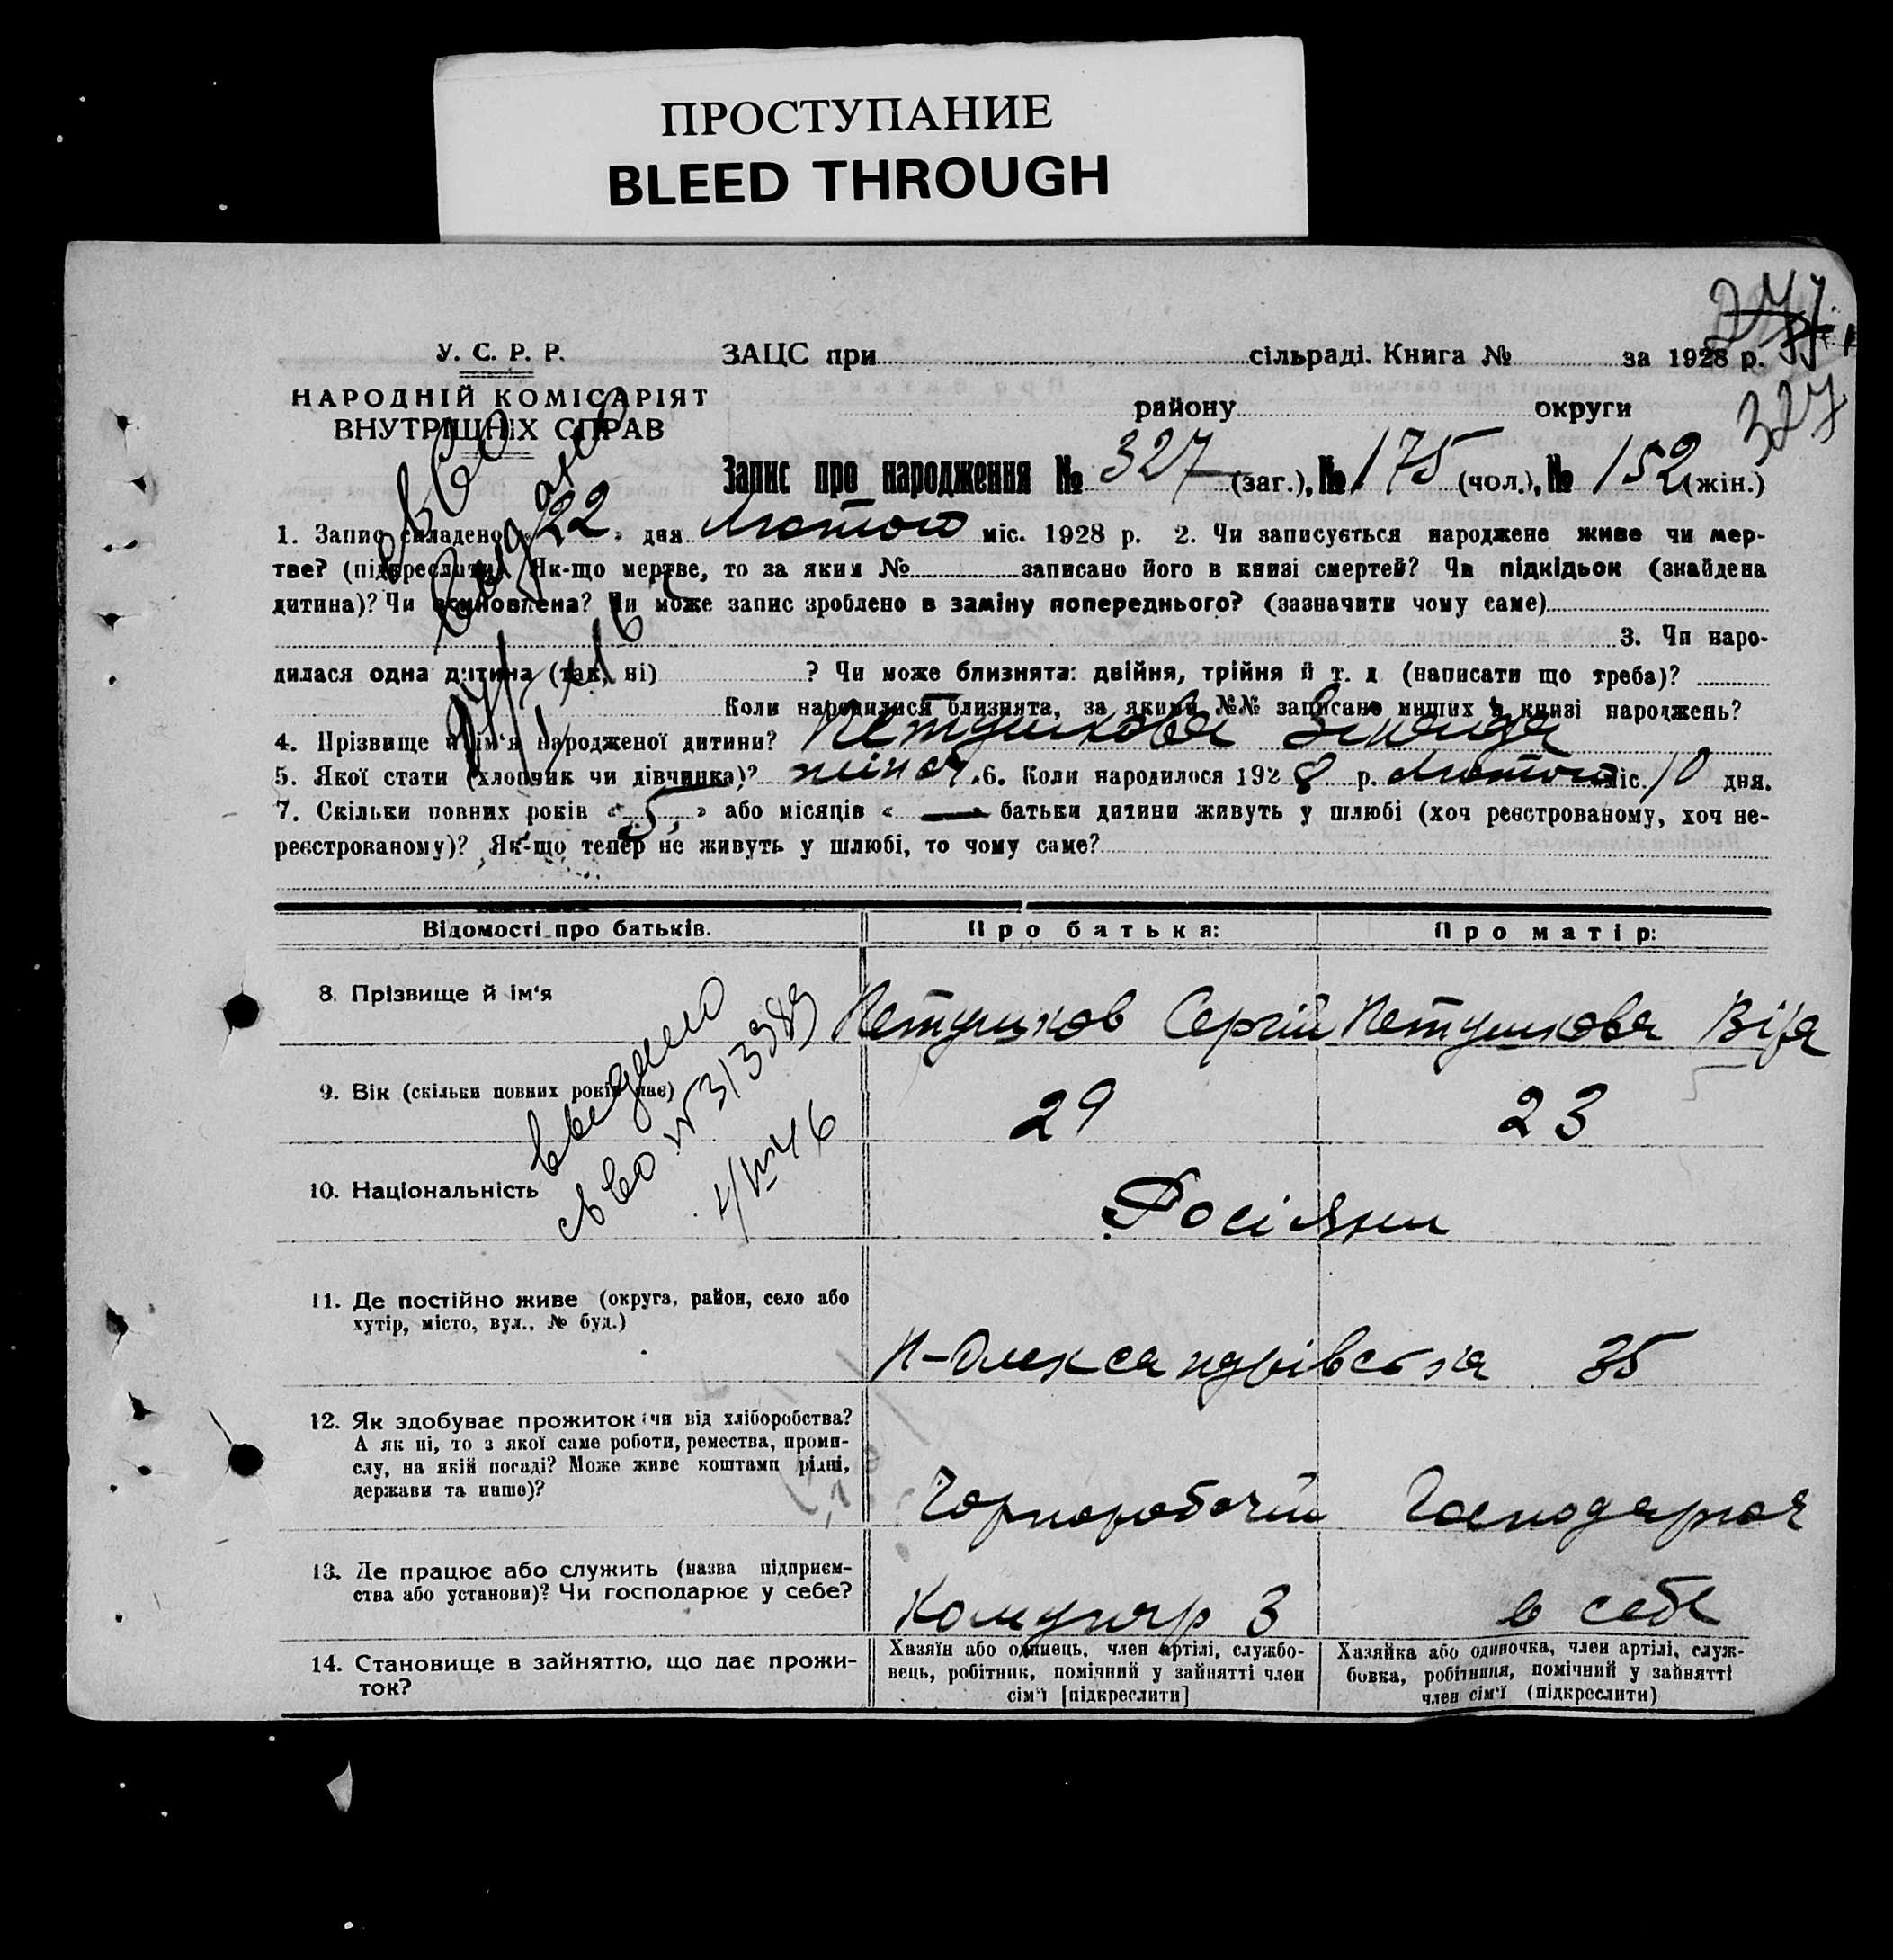 ПРОСТУПАНИЕ
BLEED THROUGH
277
327
У. С. Р. Р.
НАРОДНІЙ КОМІСАРІЯТ
ВНУТРІШНІХ СПРАВ
ЗАЦС при сільраді. Книга № за 1928 р.
району округи
Запис про народження № 327 (заг.), № 175 (чол.), № 152 (жін.)
1. Запис складено « 22 » дня Лютого міс. 1928 р. 2. Чи записується народжене живе чи мер-
тве? (підкреслити). Як-що мертве, то за яким № записано його в книзі смертей? Чи підкідьок (знайдена
дитина)? Чи усиновлена? Чи може запис зроблено в заміну попереднього? (зазначити чому саме)
3. Чи наро-
дилася одна дитина (так, ні) ? Чи може близнята: двійня, трійня й т. д (написати що треба)?
Коли народилися близнята, за якими №№ записано инших в книзі народжень?
4. Прізвище й ім'я народженої дитини? Петушкова Зинаида
5. Якої стати (хлопчик чи дівчинка)? жіноч. 6. Коли народилося 1928 р. Лютого міс. 10 дня.
7. Скільки повних років « 5 » або місяців « — » батьки дитини живуть у шлюбі (хоч реєстрованому, хоч не-
реєстрованому)? Як-що тепер не живуть у шлюбі, то чому саме?
Відомості про батьків. Про батька: Про матір:
8. Прізвище й ім'я Петушков Сергій Петушкова Віра
9. Вік (скільки повних років має) 29 23
выдано
св во № 313989
4/VII 46
10. Національність Росіяни
11. Де постійно живе (округа, район, село або
хутір, місто, вул., № буд.)
Н-Олександрівська 35
12. Як здобуває прожиток: чи від хліборобства?
А як ні, то з якої саме роботи, ремества, проми-
слу, на якій посаді? Може живе коштами рідні,
держави та инше)?
Чорноробочий Господарюя
13. Де працює або служить (назва підприєм-
ства або установи)? Чи господарює у себе?
Комунар 3 в себе
14. Становище в зайняттю, що дає прожи-
ток?
Хазяїн або одинець, член артілі, службо-
вець, робітник, помічний у зайнятті член
сім'ї [підкреслити]
Хазяйка або одиночка, член артілі, служ-
бовка, робітниця, помічний у зайнятті
член сім'ї (підкреслити)